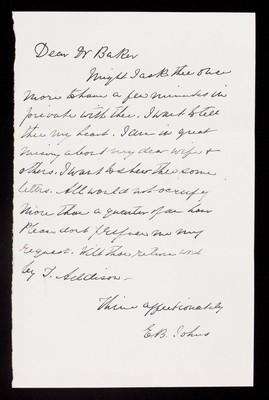 Dear Dr Baker
Might I ask thee once
more to have a few minutes in
private with thee. I want to tell
thee my heart. I am in great
misery about my dear wife &
others. I want to shew thee some
letters. All would not occupy
more than a quarter of an hour
Please dont refuse me my
request. Wilt thou return word
by T. Addison —
Thine affectionately
E.B. Johns